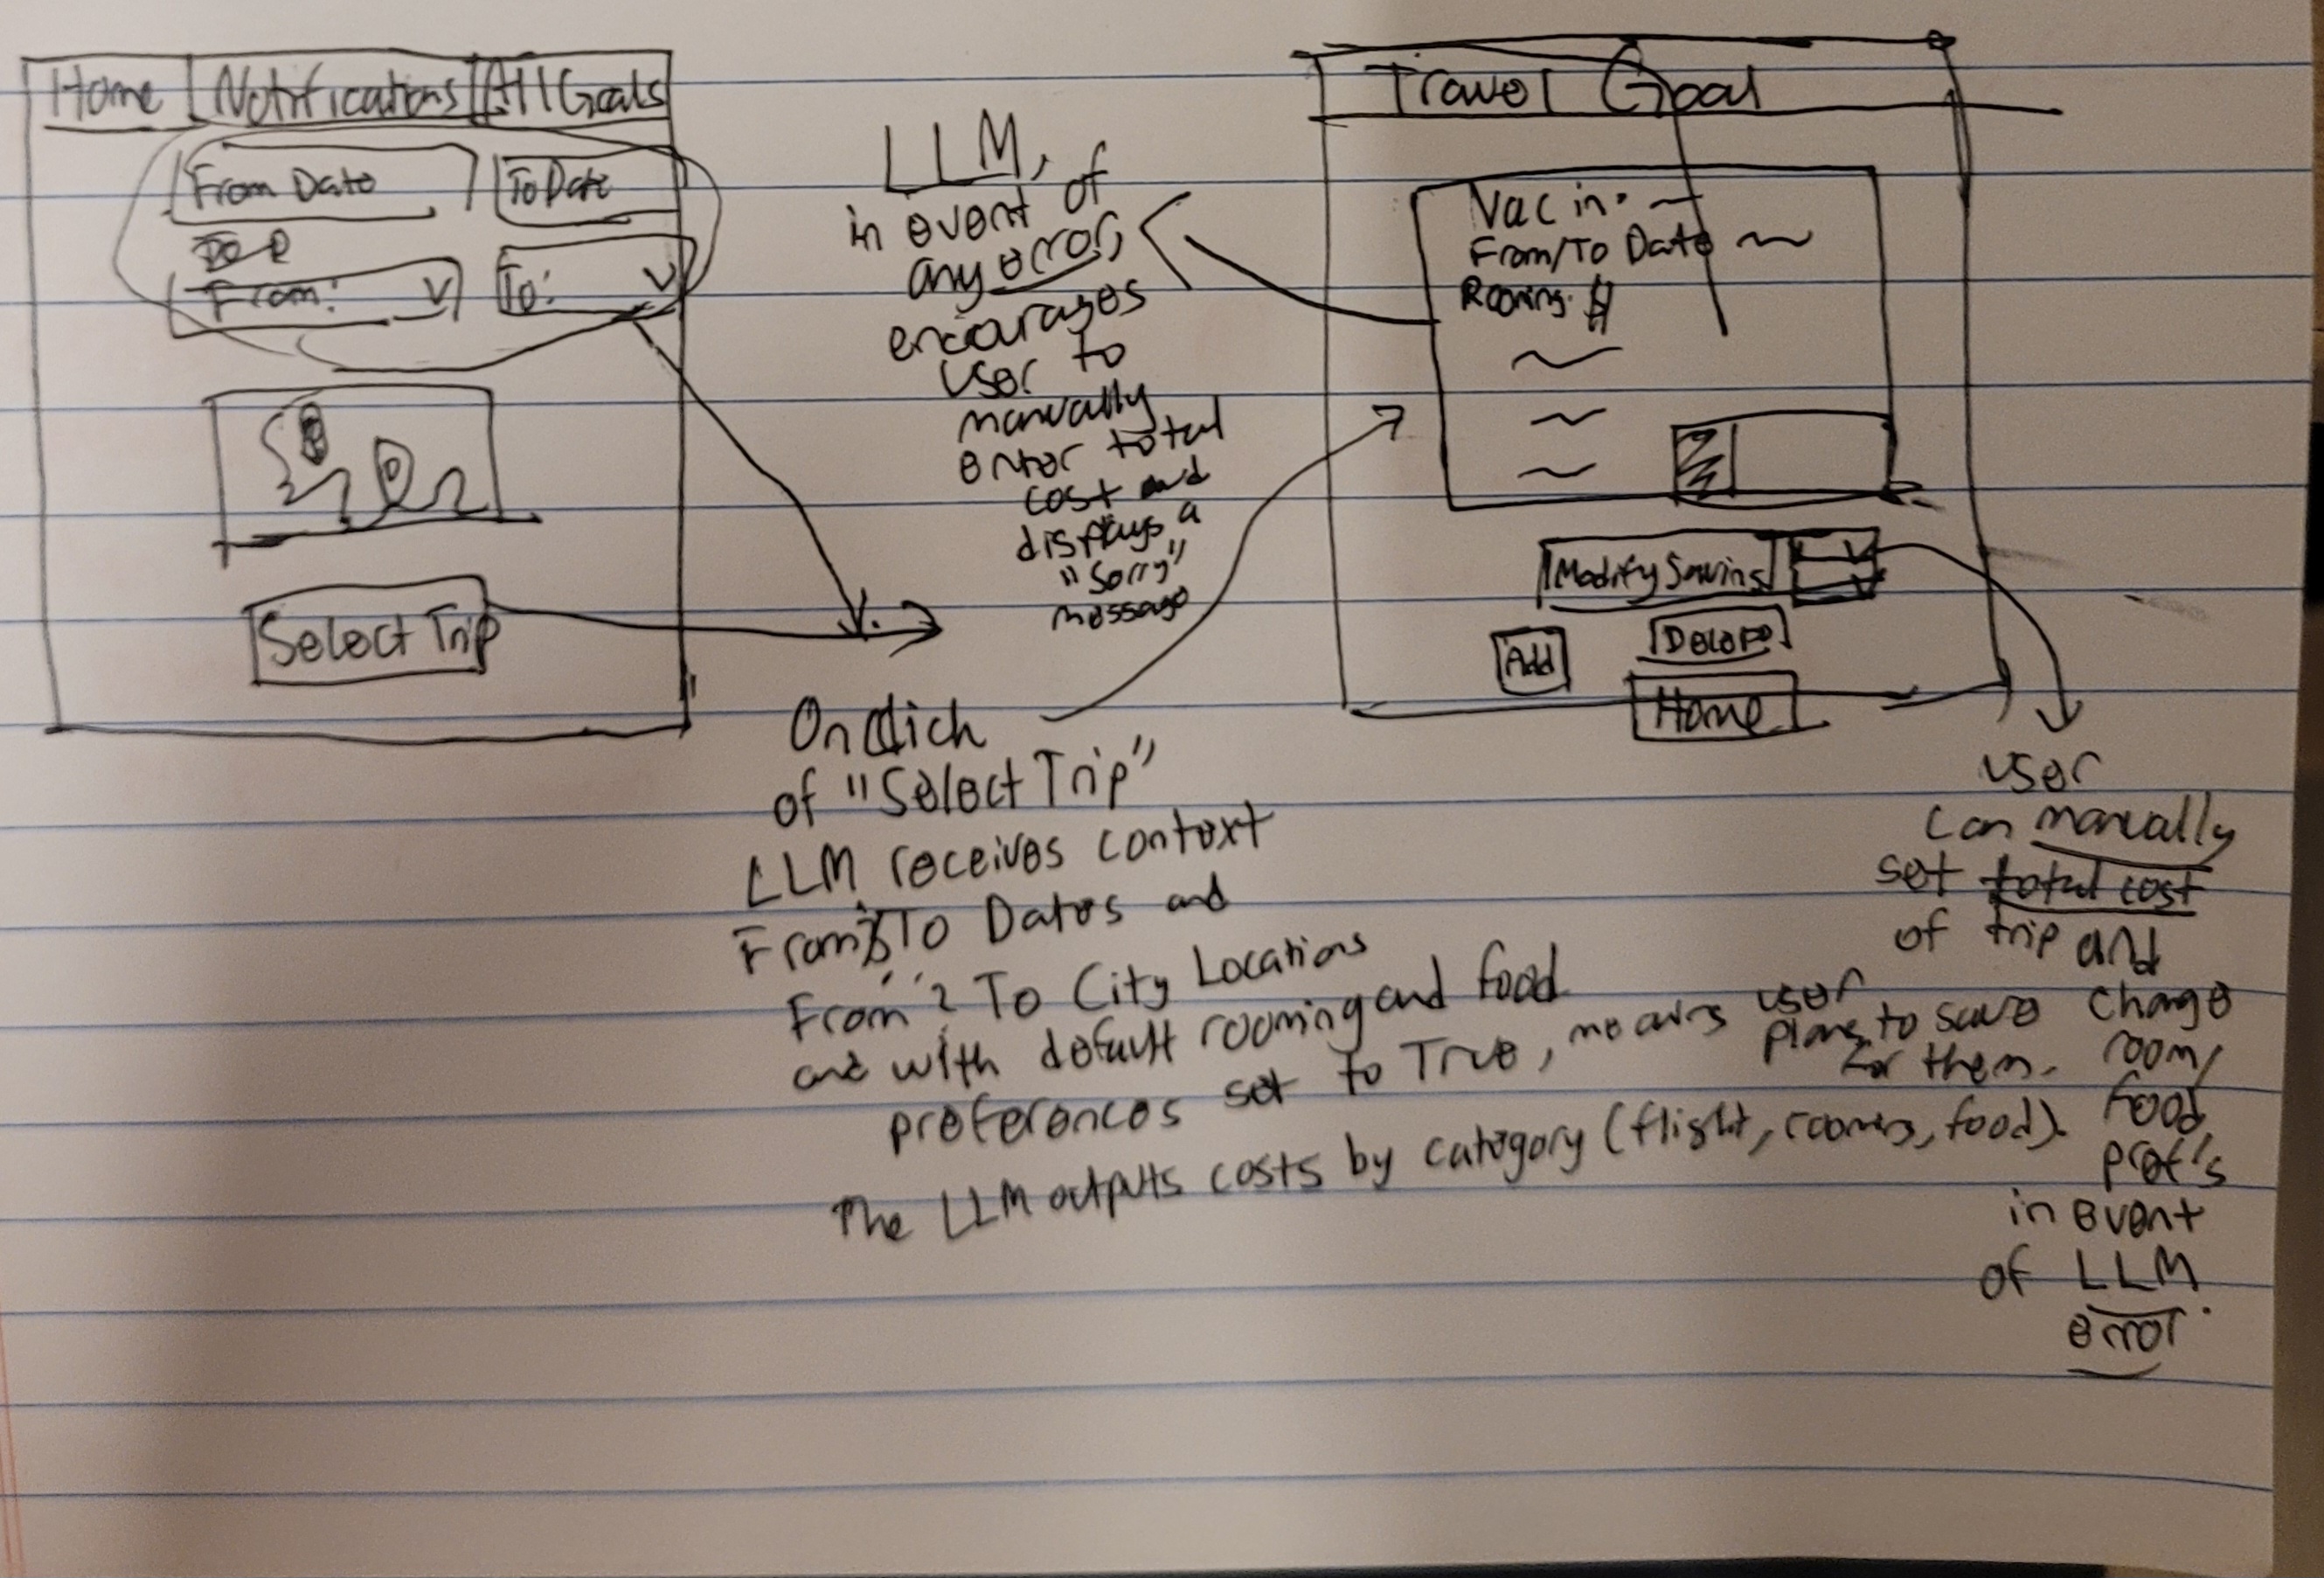 Home Notifications All Goals
From Date To Date
From: To:
Select Trip
LLM,
in event of
any error,
encourages
user to
manually
enter total
cost and
displays a
"Sorry"
message
Travel Goal
Vac in:
From/To Date
Rooming: $
Modify Saving
Add Delete
Home
On Click
of "Select Trip"
LLM receives context
From & To Dates and
From & To City Locations
and with default rooming and food
preferences set to True, means user
plans to save
for them.
The LLM outputs costs by category (flight, rooming, food).
user
can manually
set total cost
of trip and
change
room/
food
pref's
in event
of LLM
error.